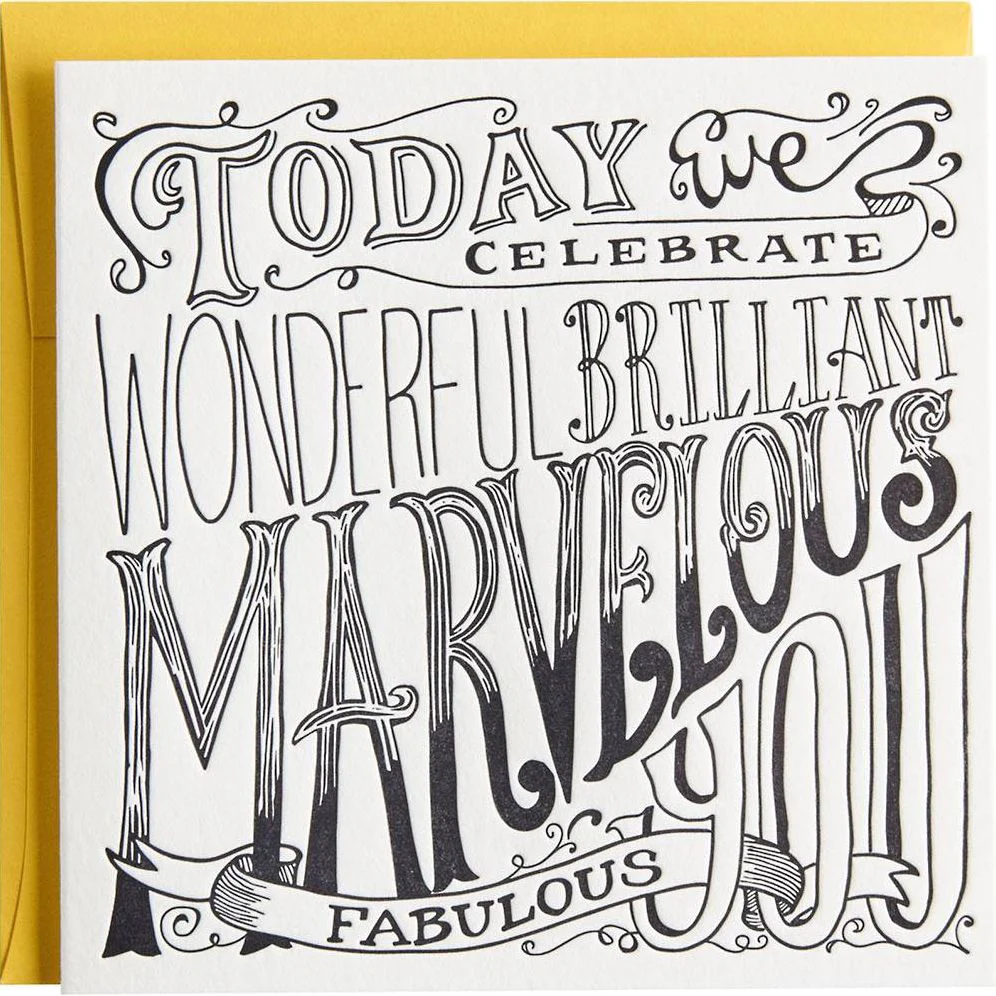 TODAY we
CELEBRATE
WONDERFUL BRILLIANT
MARVELOUS
FABULOUS
YOU